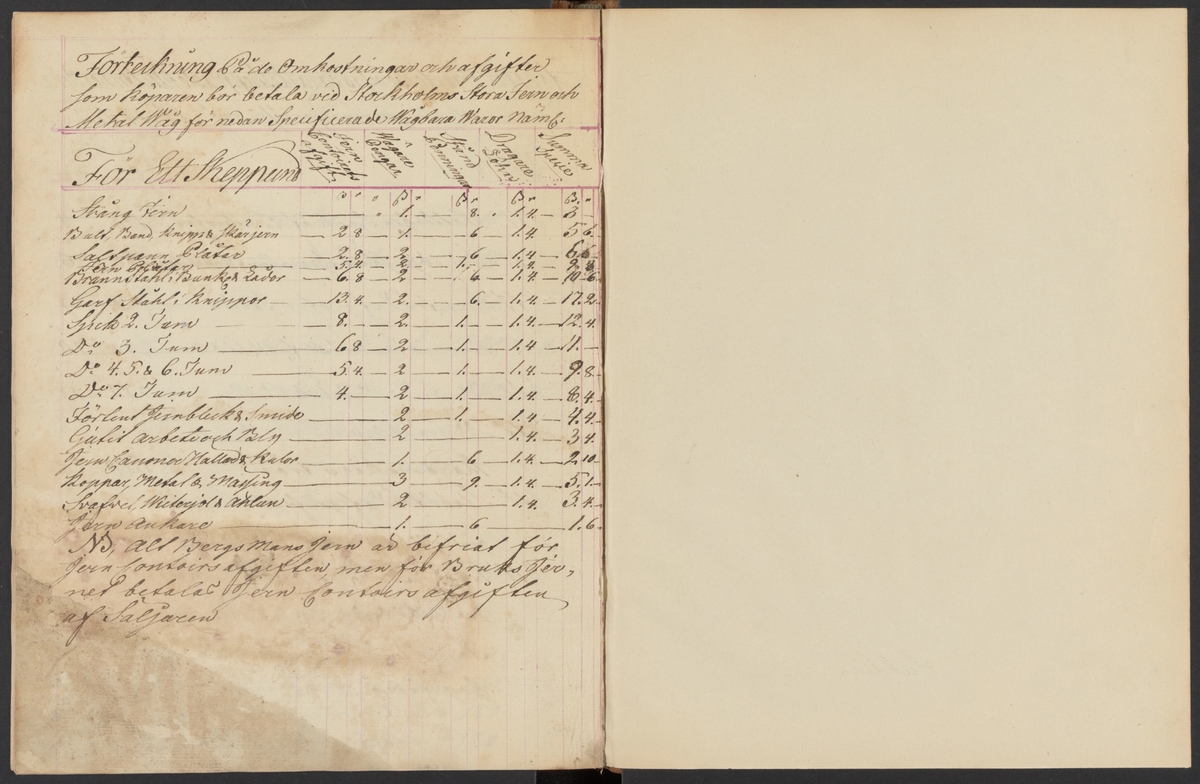 Förteckning På de Omkostningar och afgifter
som Köparen bör betala vid Stockholms Stora Jern och
Metal Wåg för nedan Specificerade Wågbara Waror Näml:
För Ett Skeppund Jern Contoirs afgift Wågare Pengar Dragare Lohn Summa Spezie
Stång Jern — " 1. " — 8. " — 1. 4. — 3 —
Bult, Band, Knipp & Skärjern — 2 8 — 1. — 6 — 1. 4. — 5 6.
Saltpann Plåtar — 2. 8 — 2 — 6 — 1. 4 — 6 6
Jern Plåtar — 5. 4. — 2 — 1. — 1. 4. — 9. 8
Brännstähl i Bunke & Lådor — 6. 8 — 2 — 6 — 1. 4 — 10. 6.
Garf Stähl i Knippor — 13. 4 — 2. — 6. — 1. 4 — 17. 2.
Spik 2. Tum — 8. — 2. — 1. — 1. 4. — 12. 4.
Do 3. Tum — 6 8 — 2 — 1. — 1. 4 — 11. —
Do 4. 5. & 6. Tum — 5. 4. — 2 — 1. — 1. 4. — 9. 8.
Do 7. Tum — 4. — 2 — 1. — 1. 4. — 8. 4.
Förtent Jernbleck & Smide — 2 — 1. — 1. 4 — 4. 4.
Gjutit arbete och Bly — 2 — 1. 4. — 3 4.
Jern Canoner Hallar & Kulor — 1. — 6 — 1. 4. — 2. 10.
Koppar, Metal & Mässing — 3 — 9. — 1. 4 — 5. 1.
Svafvel, Witerjol & Ahlun — 2 — 1. 4. — 3. 4.
Jern Ankare — 1. — 6 — 1. 6.
NB, Alt Bergsmans Jern är befriat för
Jern Contoirs afgiften men för Bruks Jer„
net betalas Jern Contoirs afgiften
af Säljaren